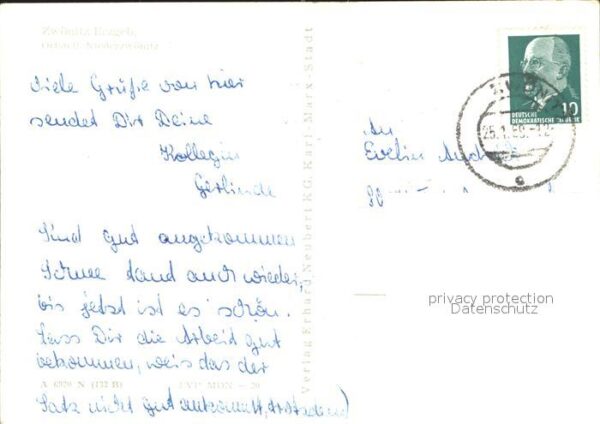 Zwönitz Erzgeb.
Ortsteil Niederzwönitz
Viele Grüße von hier
sendet Dir Deine
Kollegin
Gerlinde
Sind gut angekommen
Schnee fand auch wieder,
bis jetzt ist es schön.
Lass Dir die Arbeit gut
bekommen, weis das der
Satz nicht gut ankommt, trotzdem)
A 6970 N (172 B)
Verlag Erhard Neubert KG, Karl-Marx-Stadt
10
DEUTSCHE
DEMOKRATISCHE
25.1.69.-12
An
Evelin
privacy protection
Datenschutz